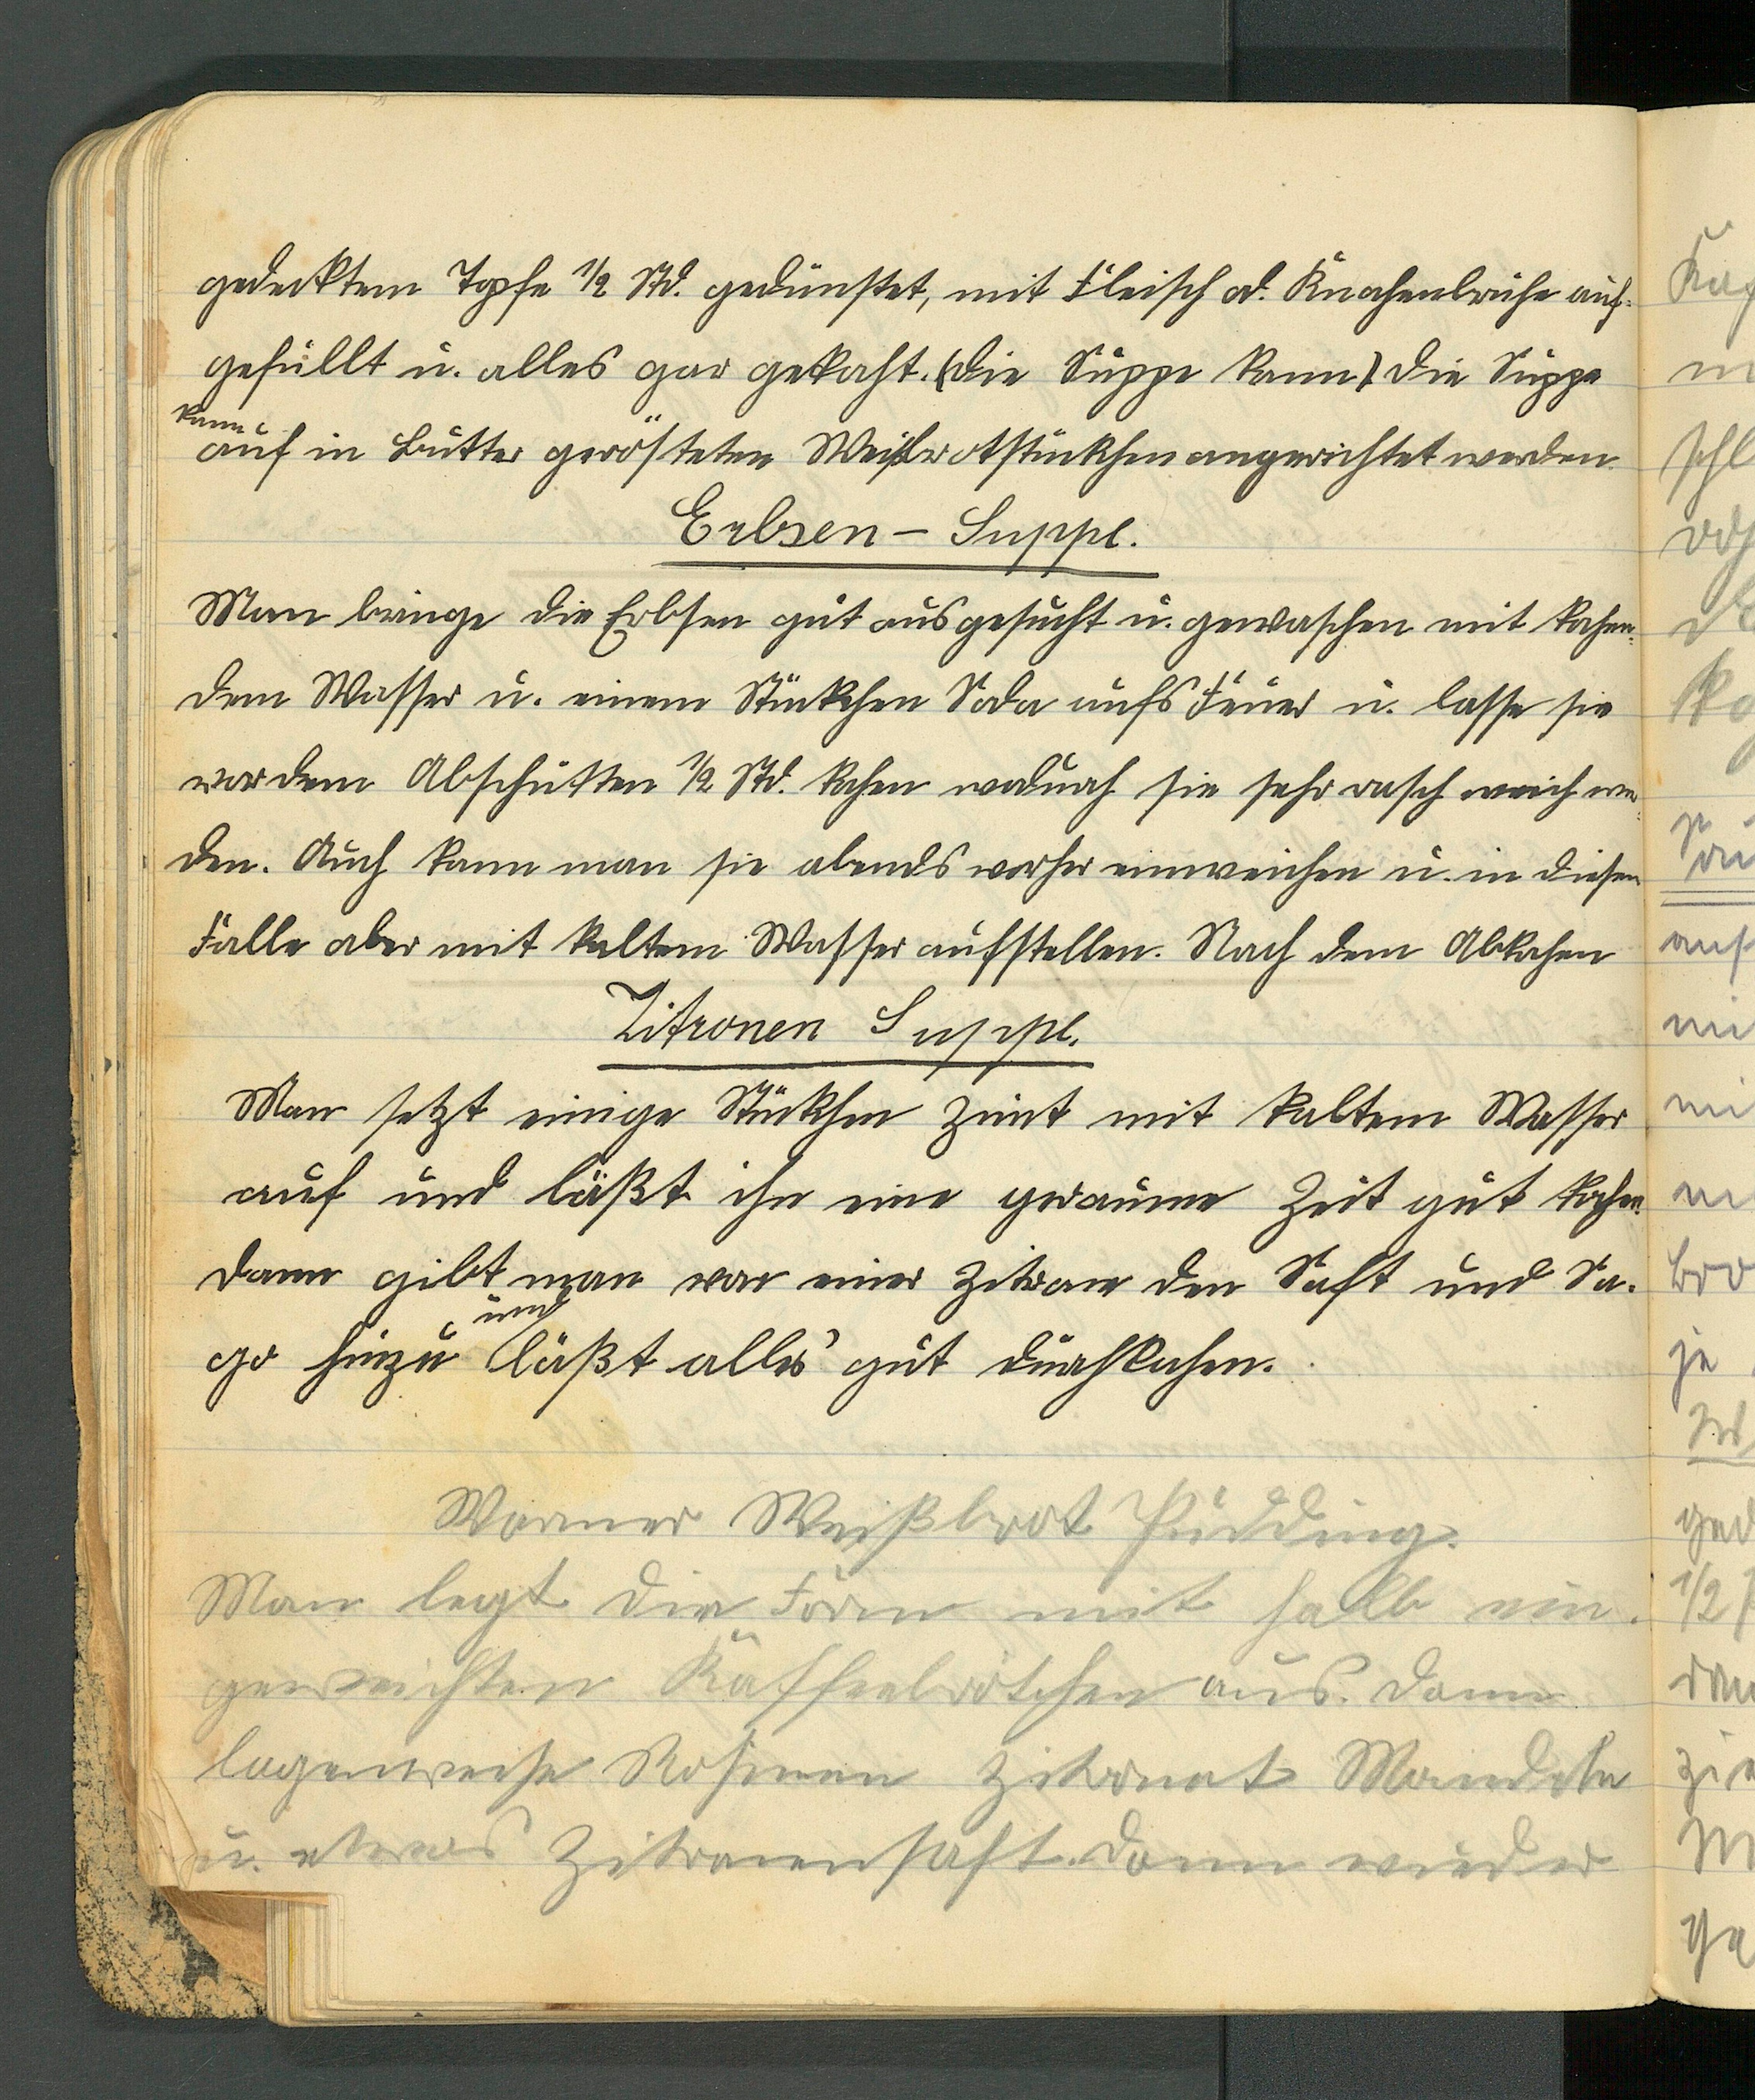 gedecktem Topfe 1/2 Std. gedünstet, mit Fleisch od. Knochenbrühe auf-
gefüllt u. alles gar gekocht. (die Suppe kann) Die Suppe
kann
auf in Butter gerösteten Weißbrotstückchen angerichtet werden.
Erbsen- Suppe.
Man bringe die Erbsen gut ausgesucht u. gewaschen mit kochen-
dem Wasser u. einem Stückchen Soda aufs Feuer u. lasse sie
vor dem Abschütten 1/2 Std. kochen wodurch sie sehr rasch weich wer-
den. Auch kann man sie abends vorher einweichen u. in diesem
Falle aber mit kaltem Wasser aufstellen. Nach dem Abkochen
Zitronen Suppe.
Man setzt einige Stückchen Zimt mit kaltem Wasser
auf und läßt ihn eine geraume Zeit gut kochen.
dann gibt man von einer Zitrone den Saft und Sa-
und
go hinzu läßt alles gut durchkochen.
Warmer Weißbrot Pudding.
Man legt die Form mit halb ein-
geweichten Kaffeebrötchen aus. dann
lagenweise Rosinen Zitronat Mandeln
u. etwas Zitronensaft. dann wieder